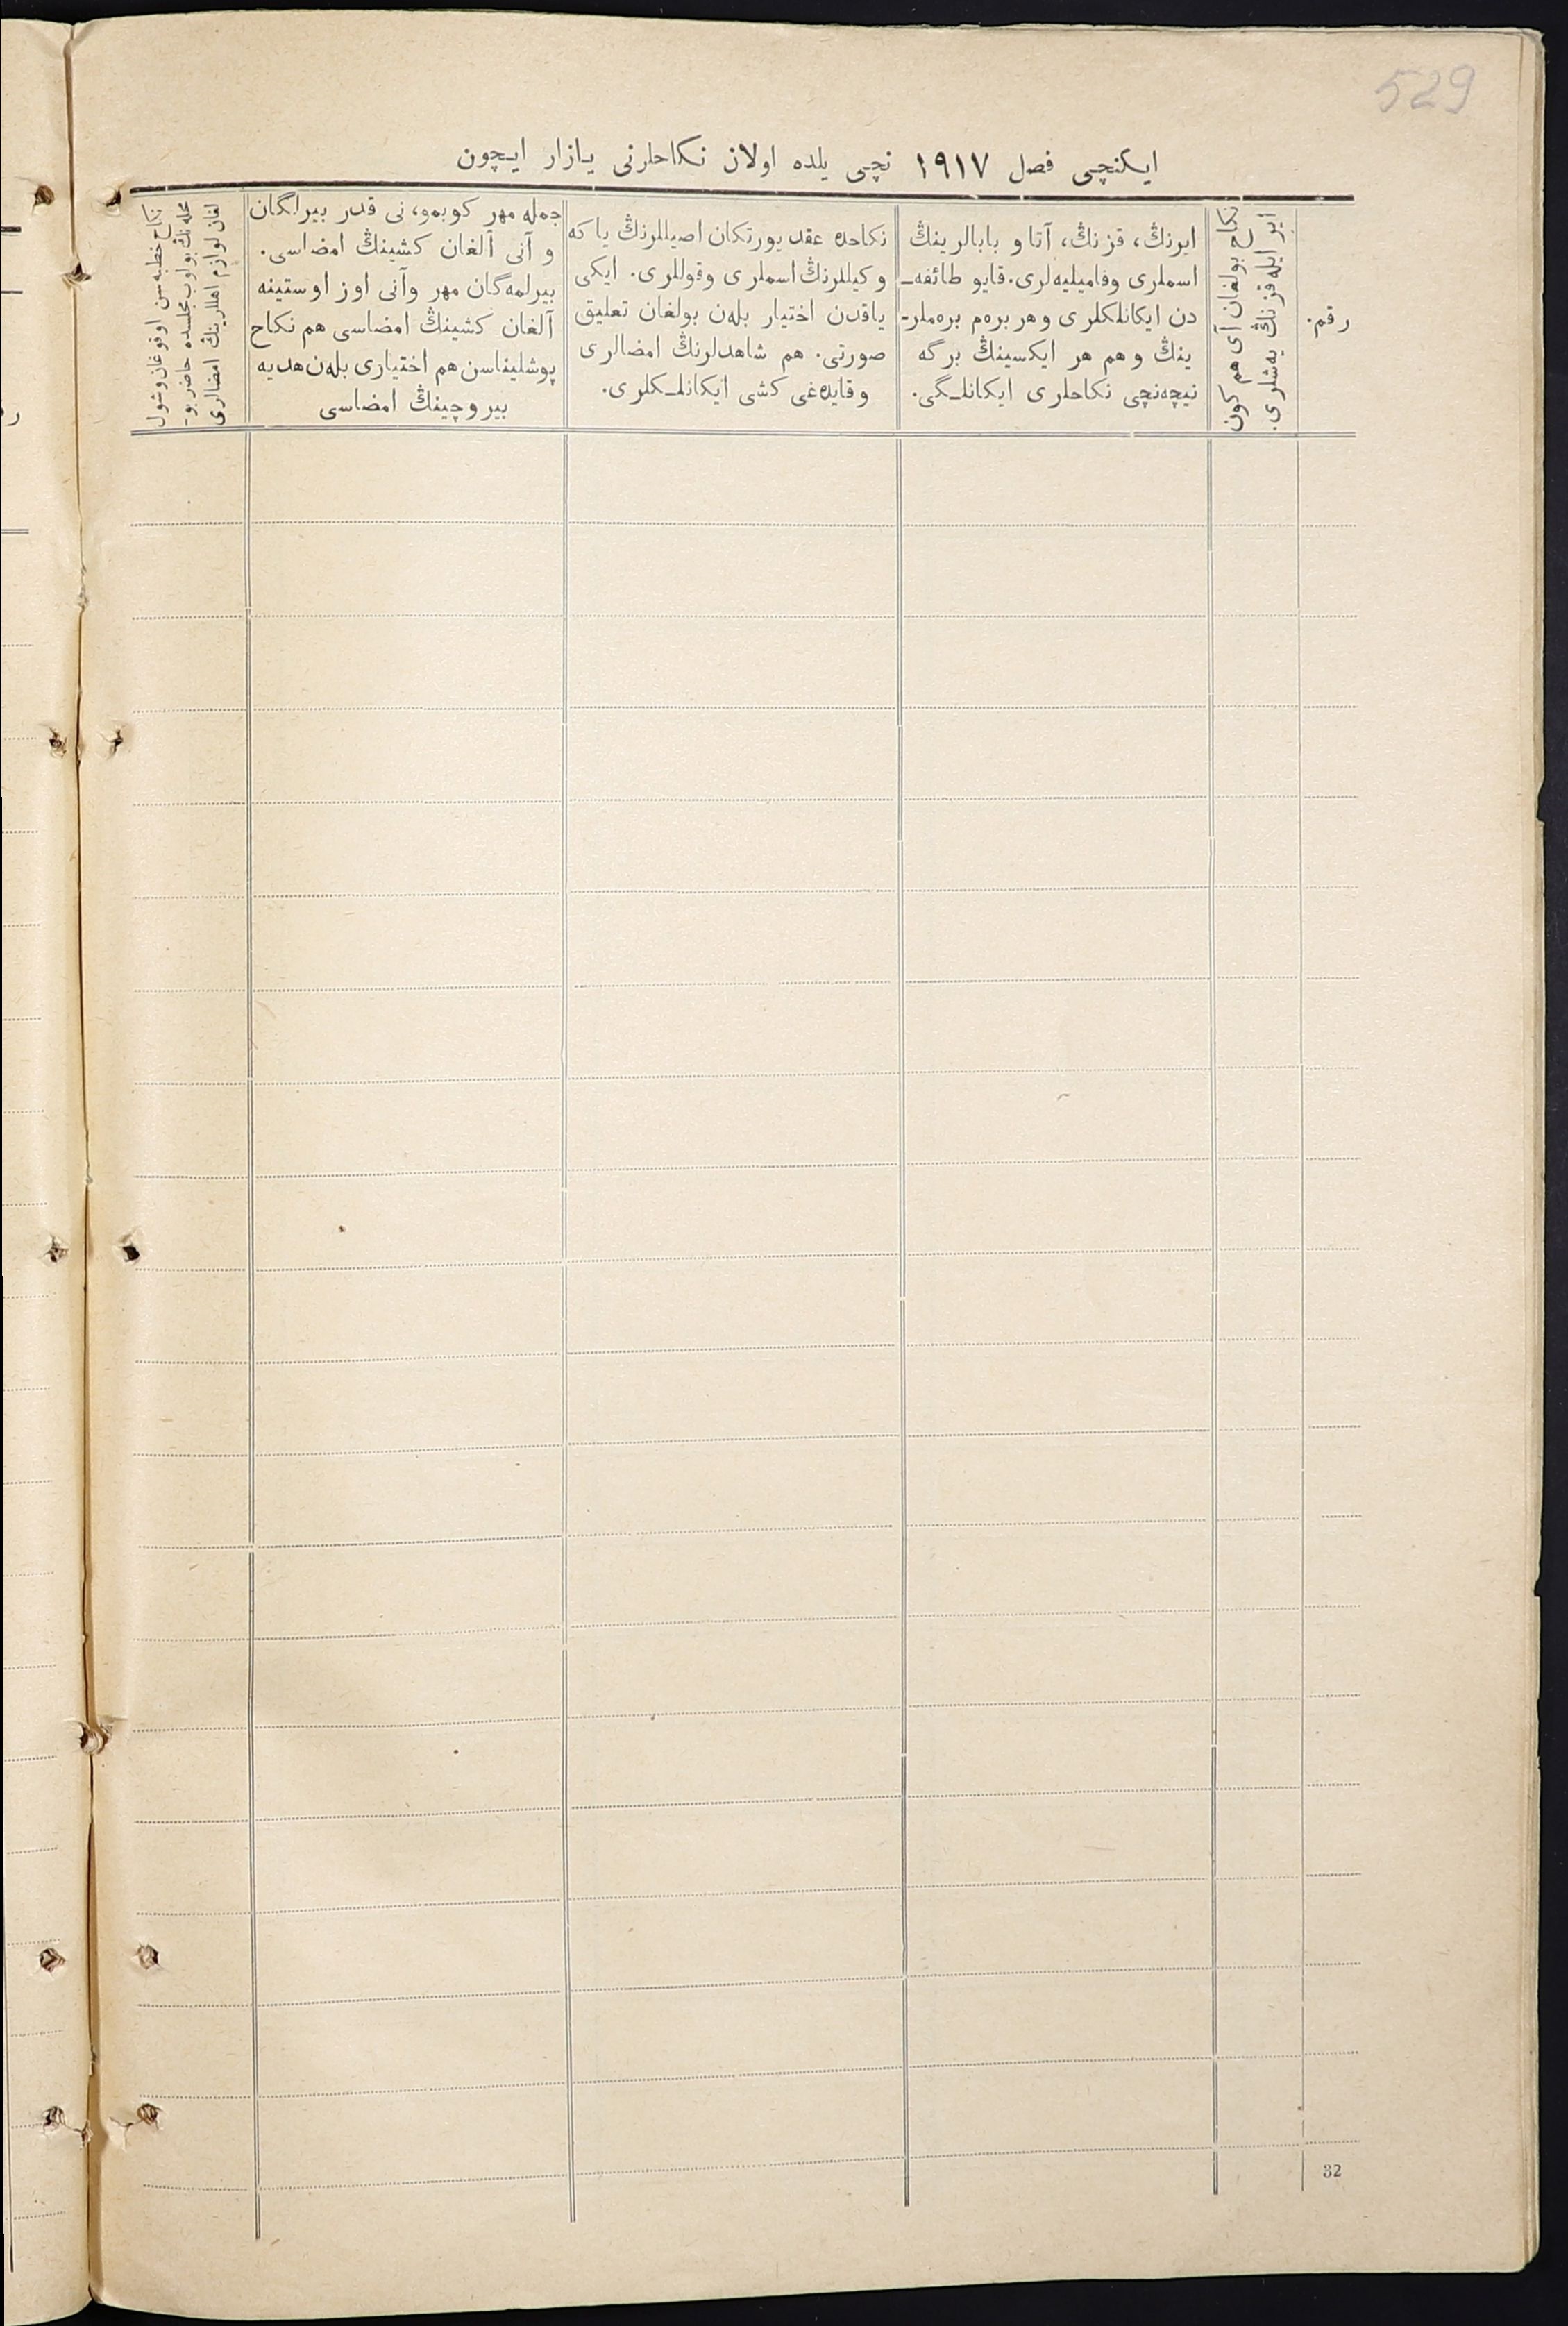 529
ایكنچی فصل ١٩١٧ نچی یلده اولان نكاحلرنی یازار ایچون
رقم.
نكاح بولغان آی هم كون
ایر ایله قزنڭ یه‌شلری.
ایرنڭ، قزنڭ، آتا و بابالرینڭ
اسملری وفامیلیه‌لری. قایو طائفه‌ـ
دن ایكانلكلری وهر بره‌م بره‌ملر-
ینڭ وهم هر ایكسینڭ برگه
نیچه‌نچی نكاحلری ایكانلـگی.
نكاحده عقد یورتكان اصیللرنڭ یا كه
وكیللرنڭ اسملری وقوللری. ایكی
یاقدن اختیار بله‌ن بولغان تعلیق
صورتی. هم شاهدلرنڭ امضالری
وقایده‌غی كشی ایكانلـكلری.
جمله مهر كوبمو، نی قدر بیرلگان
و آنی آلغان كشینڭ امضاسی.
بیرلمه‌گان مهر وآنی اوز اوستینه
آلغان كشینڭ امضاسی هم نكاح
پوشلیناسن هم اختیاری بله‌ن هدیه
بیروچینڭ امضاسی
نكاح خطبه‌سن اوقوغان وشول
محله‌نڭ بولوب مجلسده حاضر بو-
لغان لوازم اهللرینڭ امضالری
32